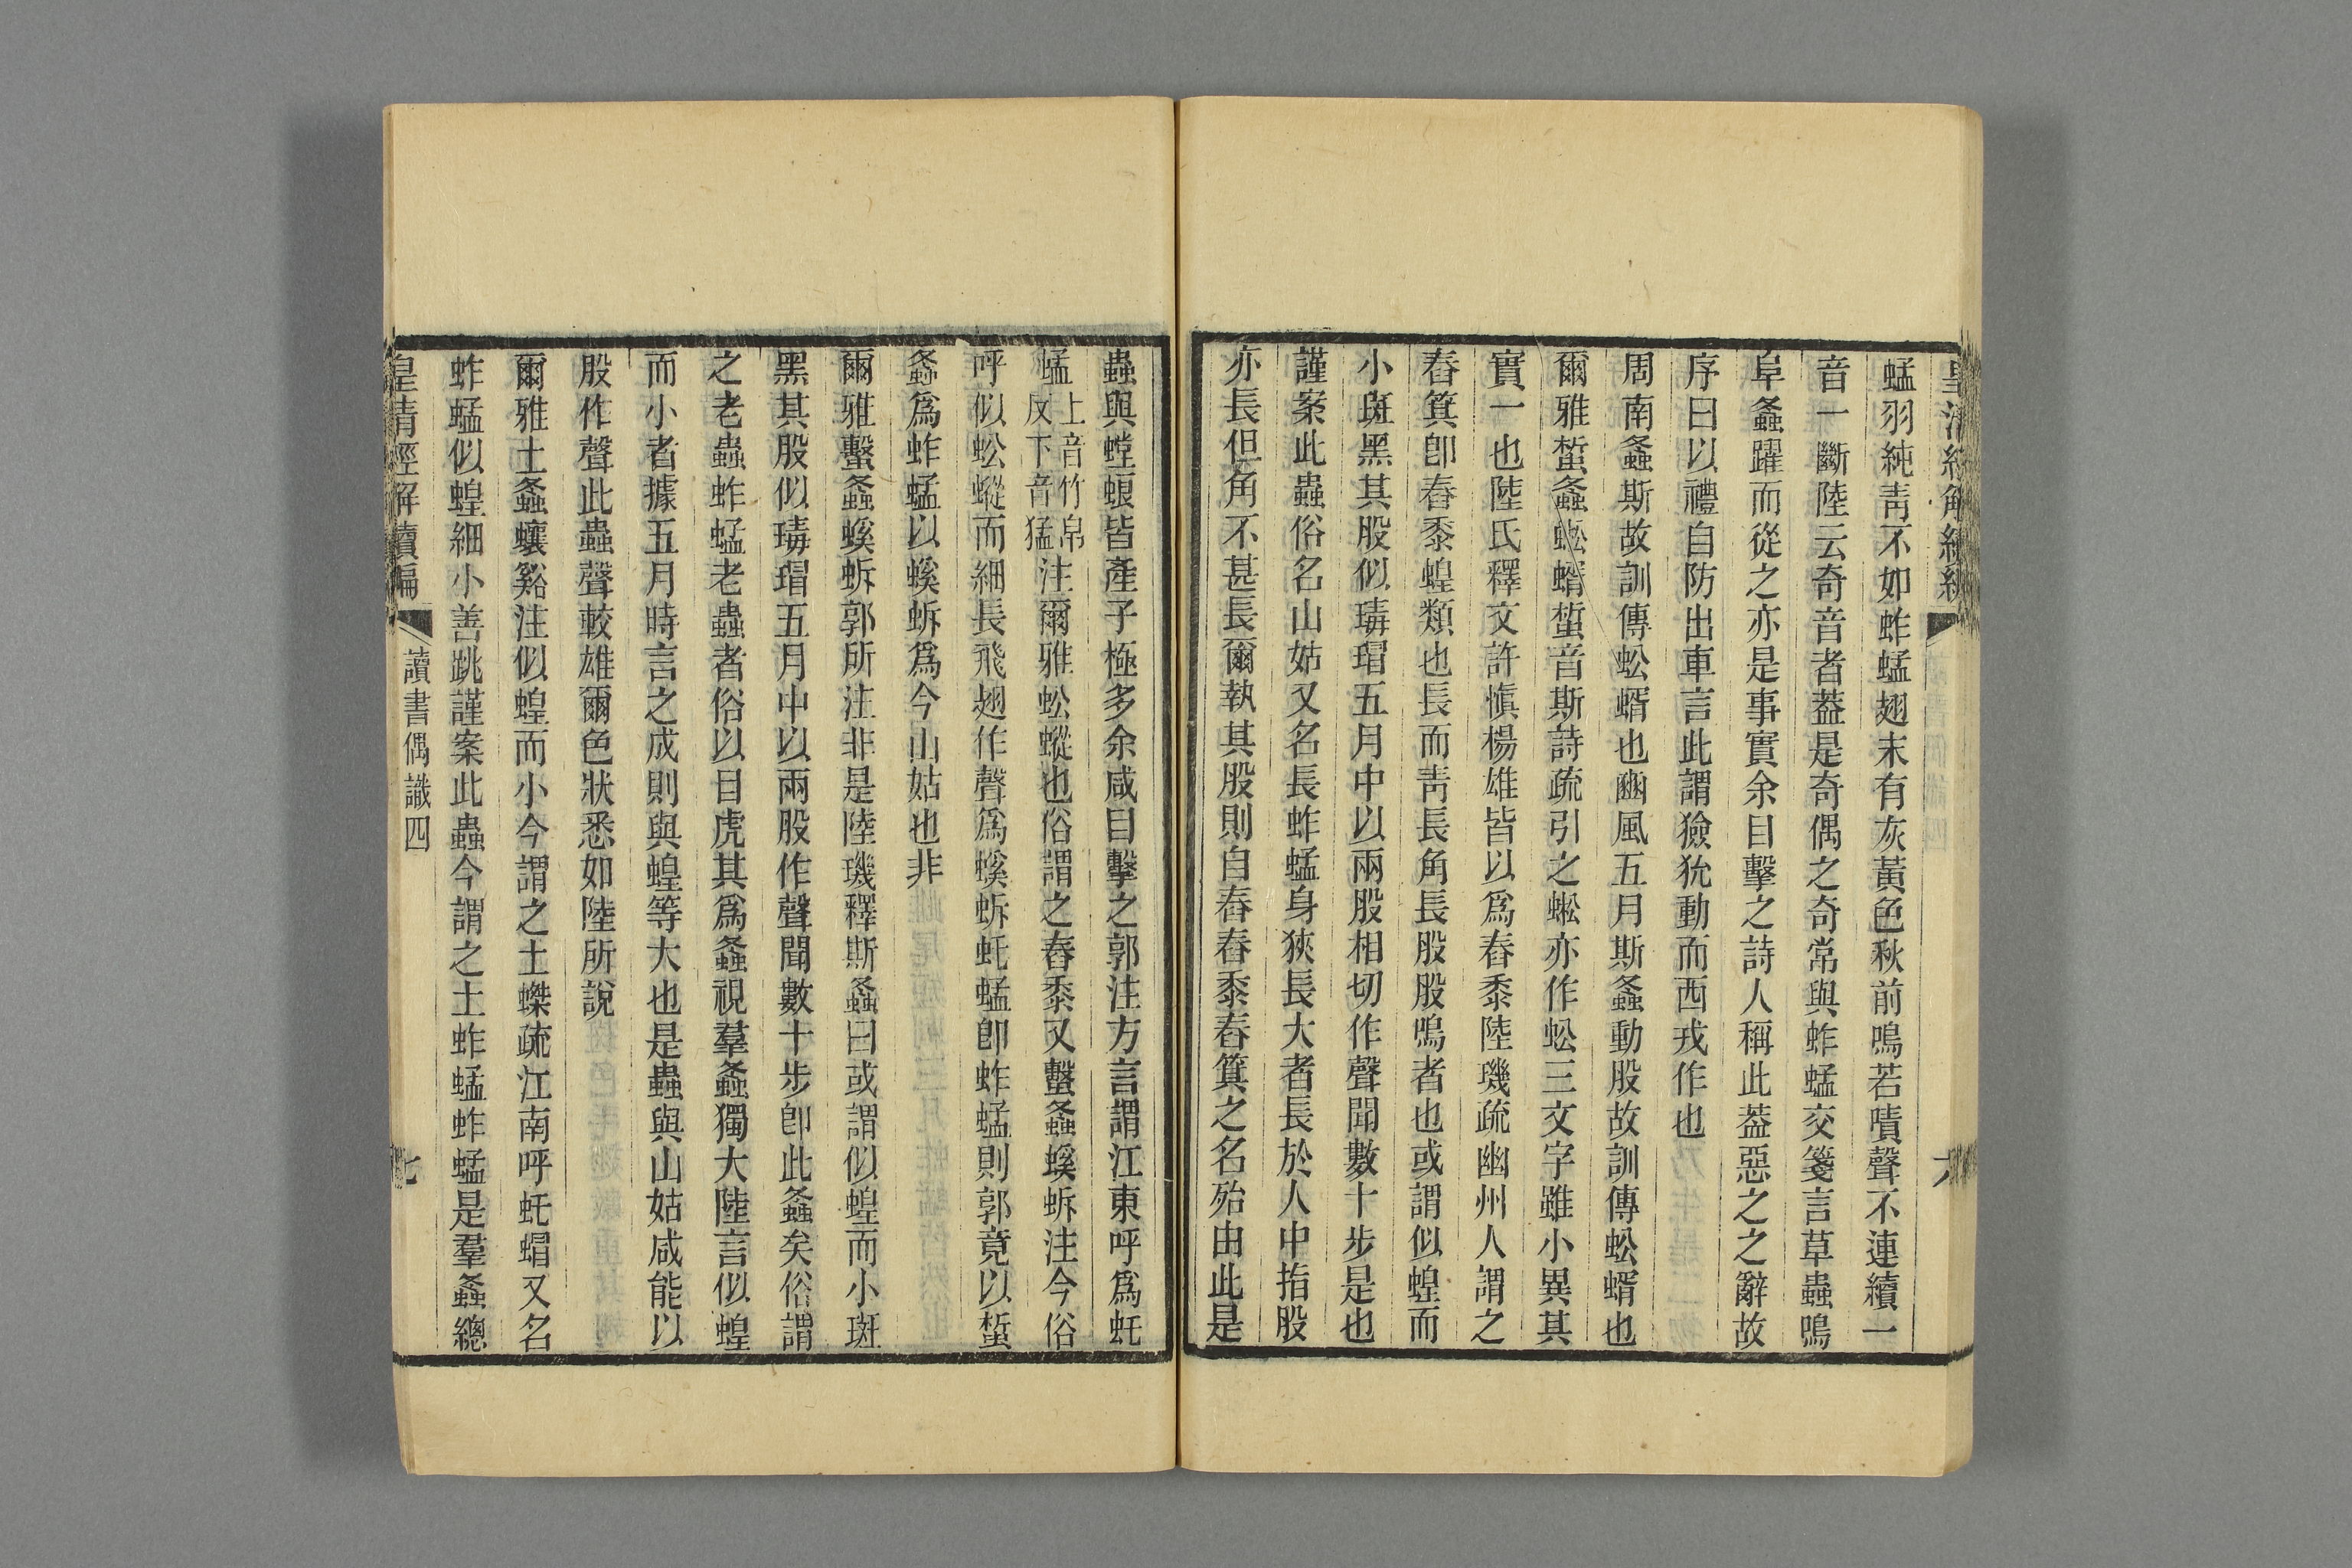 蜢羽純靑不如蚱蜢翅末有灰黃色秋前鳴若嘖聲不連續一
音一斷陸云奇音者葢是奇偶之奇常與蚱蜢交箋言草蟲鳴
阜螽躍而從之亦是事實余目擊之詩人稱此葢惡之之辭故
序曰以禮自防出車言此謂獫狁動而西戎作也
周南螽斯故訓傳蚣蝑也豳風五月斯螽動股故訓傳蚣蝑也
爾雅蜤螽蜙蝑蜤音斯詩疏引之蜙亦作蚣三文字雖小異其
實一也陸氏釋文許愼楊雄皆以爲舂黍陸璣疏幽州人謂之
舂箕卽舂黍蝗類也長而靑長角長股股鳴者也或謂似蝗而
小斑黑其股似瑇瑁五月中以兩股相切作聲聞數十步是也
謹案此蟲俗名山姑又名長蚱蜢身狹長大者長於人中指股
亦長但角不甚長爾執其股則自舂舂黍舂箕之名殆由此是
蟲與螳蜋皆產子極多余咸目擊之郭注方言謂江東呼爲虴
蜢上音竹帛反下音猛注爾雅蚣蝑也俗謂之舂黍又蟿螽螇蚸注今俗
呼似蚣蝑而細長飛翅作聲爲螇蚸虴蜢卽蚱蜢則郭竟以蜤
螽爲蚱蜢以螇蚸爲今山姑也非
爾雅蟿螽螇蚸郭所注非是陸璣釋斯螽曰或謂似蝗而小斑
黑其股似瑇瑁五月中以兩股作聲聞數十步卽此螽矣俗謂
之老蟲蚱蜢老蟲者俗以目虎其爲螽視羣螽獨大陸言似蝗
而小者據五月時言之成則與蝗等大也是蟲與山姑咸能以
股作聲此蟲聲較雄爾色狀悉如陸所說
爾雅土螽蠰谿注似蝗而小今謂之土蠜疏江南呼虴蜢又名
蚱蜢似蝗細小善跳謹案此蟲今謂之土蚱蜢蚱蜢是羣螽總
皇淸經解續編
讀書偶識四
七